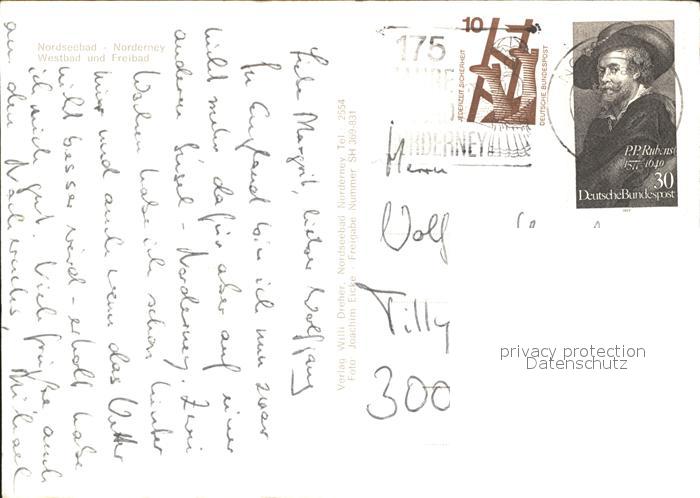 Nordseebad - Norderney
Westbad und Freibad
Liebe Margrit, lieber Wolfgang
In England bin ich nun zwar
nicht mehr dafür aber auf einer
anderen Insel - Norderney. Zwei
Wochen habe ich schon hinter
mir und auch wenn das Wetter
nicht besser wird - erholt habe
ich mich gut. Viele Grüße auch
an den
Michael
Verlag Willi Dreher, Nordseebad Norderney Tel. 2554
Foto Joachim Eicke - Freigabe Nummer SH 369-831
175
JAHRE
NORDERNEY
10
JEDERZEIT SICHERHEIT
DEUTSCHE BUNDESPOST
P.P.Rubens
1577-1640
30
Deutsche Bundespost
1977
Herrn
Wolf
Tilly
300
privacy protection
Datenschutz